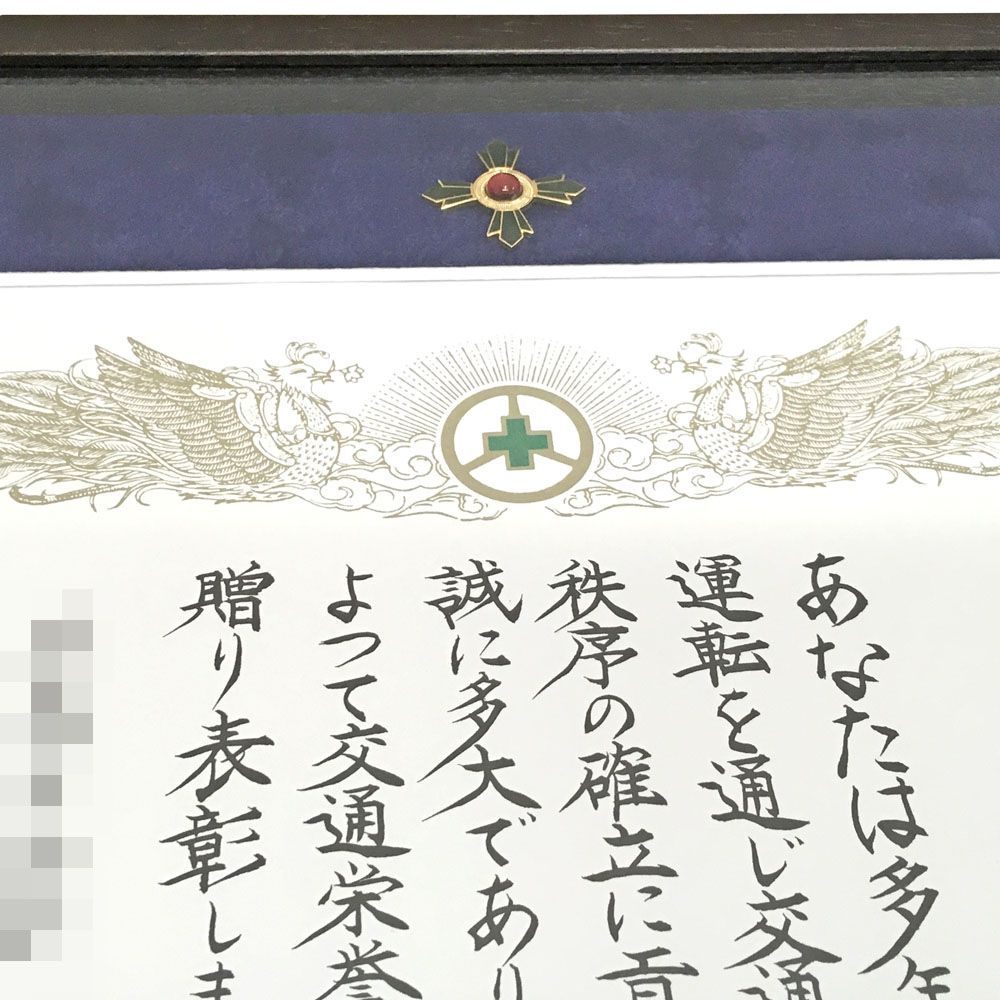 あなたは多年
運転を通じ交通
秩序の確立に貢
誠に多大であり
よつて交通栄誉
贈り表彰しま